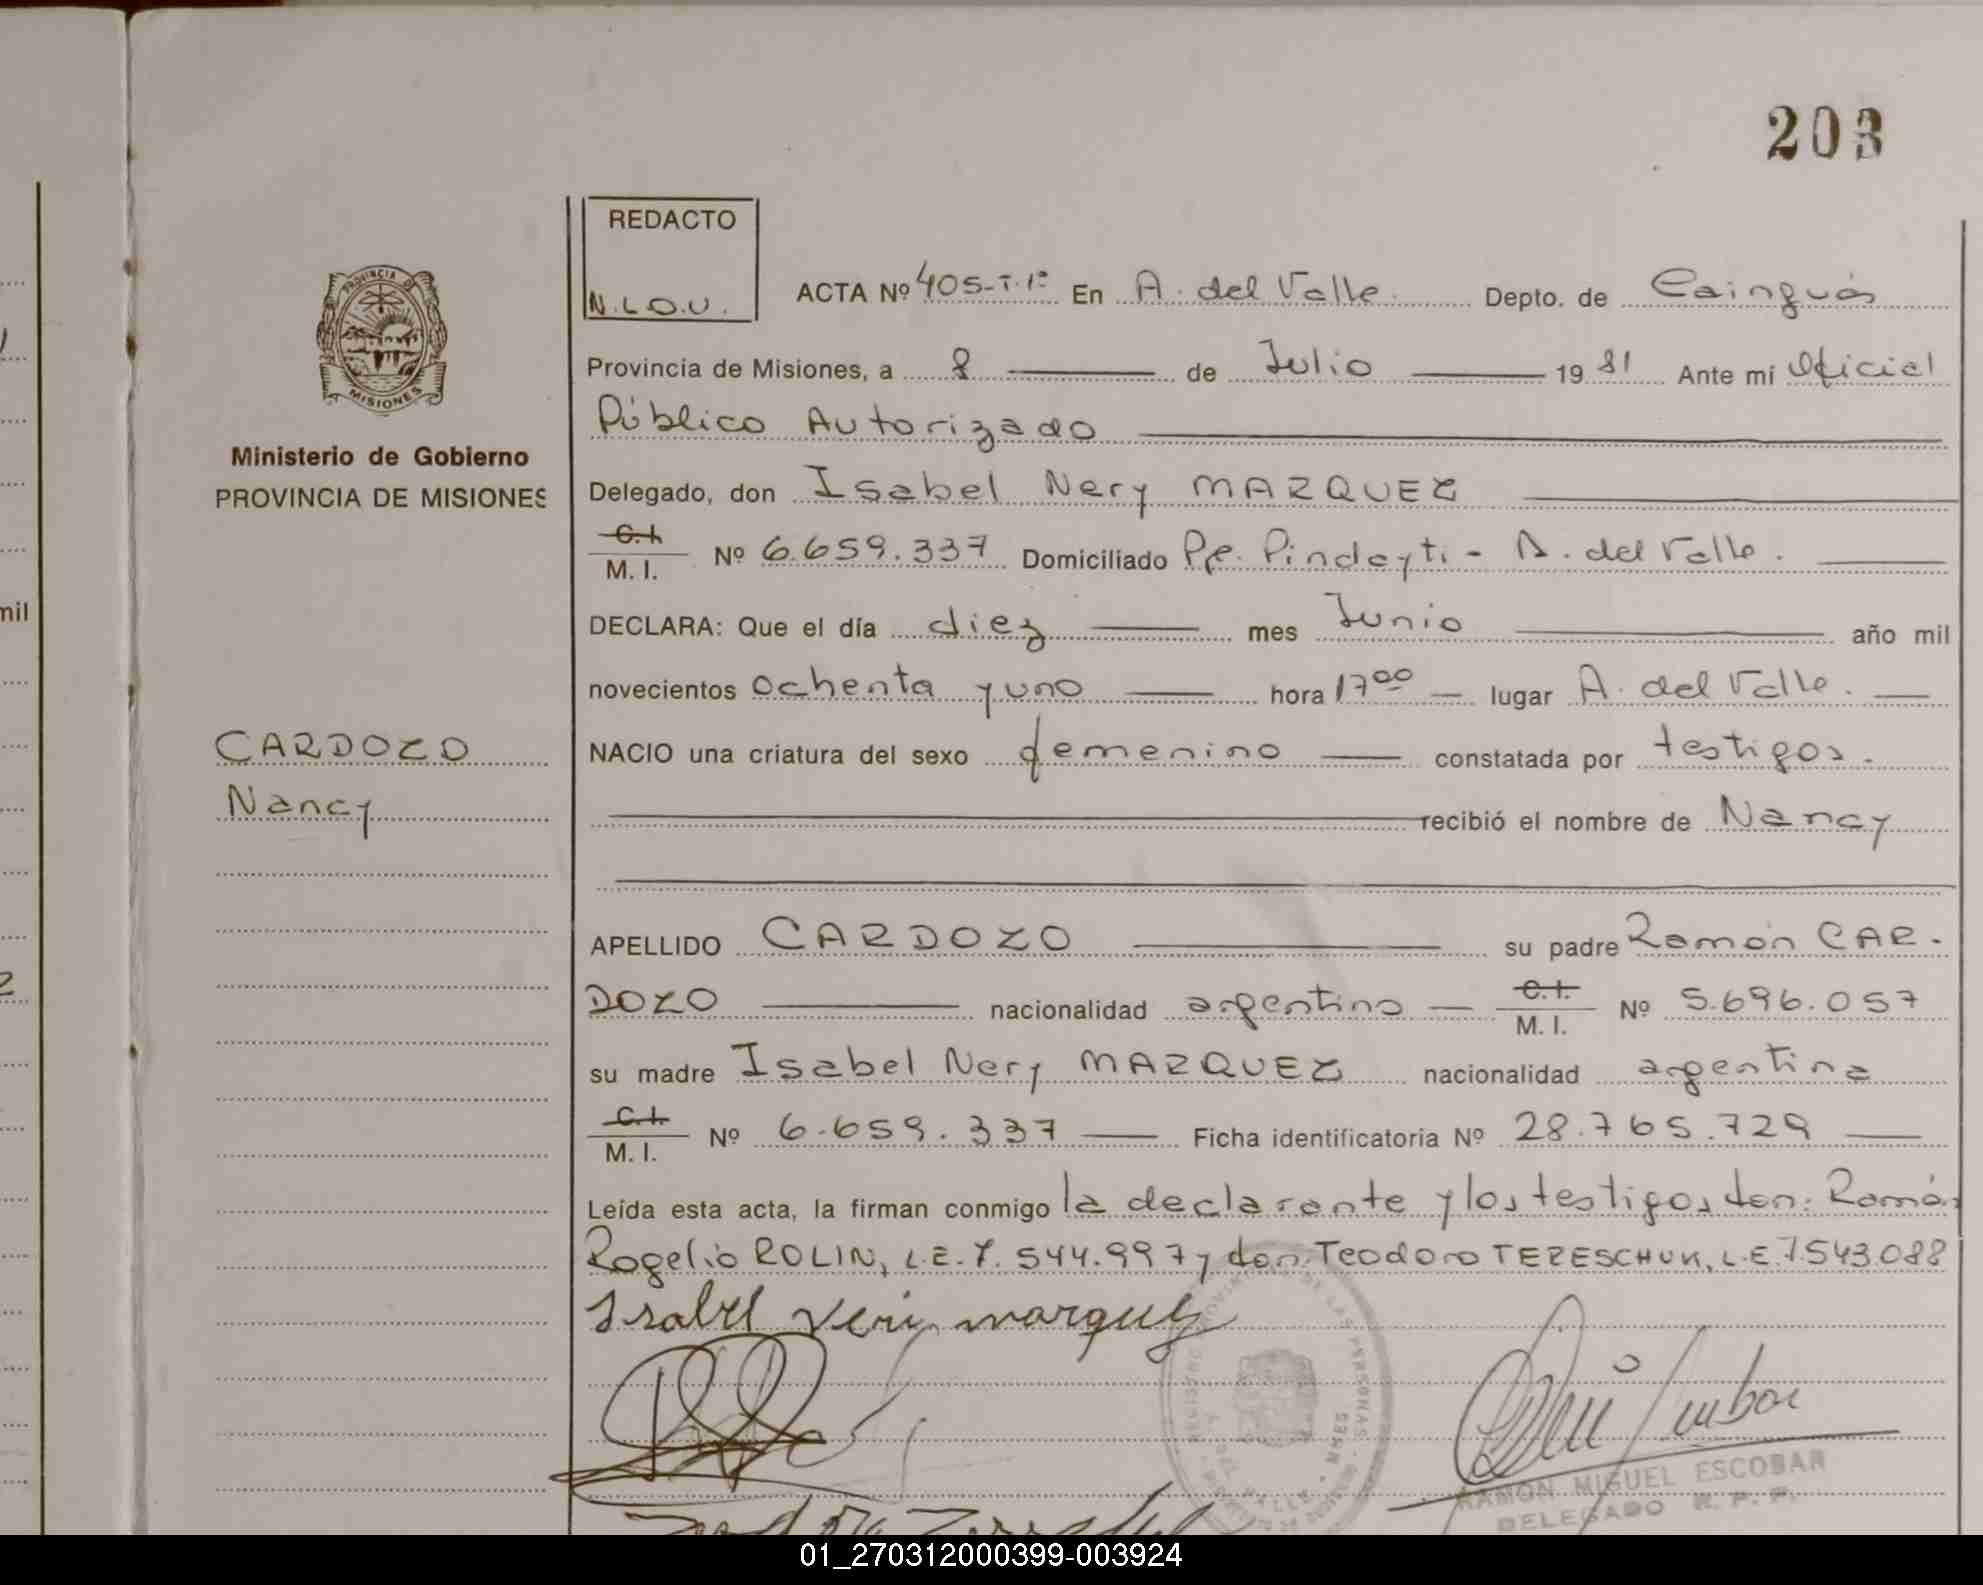 203
REDACTO
N.L.O.U.
ACTA Nº 405-T.1º En A. del Valle. Depto. de Cainguás
Provincia de Misiones, a 8 de Julio 19 81 Ante mí Oficial
Público Autorizado
Delegado, don Isabel Nery MARQUEZ
C.I.
M. I. Nº 6.659.337 Domiciliado Pje. Pindayti - A. del Valle.
DECLARA: Que el día diez mes Junio año mil
novecientos ochenta y uno hora 17⁰⁰ lugar A. del Valle.
NACIO una criatura del sexo femenino constatada por testigos.
recibió el nombre de Nancy
APELLIDO CARDOZO su padre Ramón CAR-
DOZO nacionalidad argentino C.I.
M. I. Nº 5.696.057
su madre Isabel Nery MARQUEZ nacionalidad argentina
C.I.
M. I. Nº 6.659.337 Ficha identificatoria Nº 28.765.729
Leída esta acta, la firman conmigo la declarante y los testigos don: Ramón
Rogelio ROLIN, L.E. 7.544.997 y don Teodoro TERESCHUK, L.E. 7.543.088
Isabel Neri marquez
RAMON MIGUEL ESCOBAR
DELEGADO R. P. P.
PROVINCIA DE
MISIONES
Ministerio de Gobierno
PROVINCIA DE MISIONES
CARDOZO
Nancy
mil
01_270312000399-003924